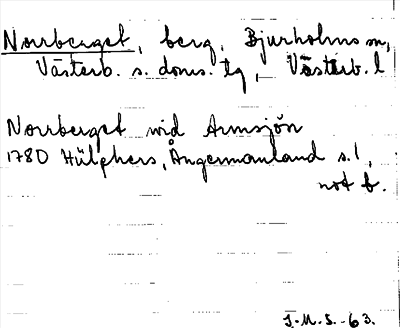 Norrberget, berg, Bjurholms sn,
Västerb. s. doms. tg, Västerb. l
Norrberget wid Armsjön
1780 Hülphers, Ångermanland s. 1,
not b.
J.M.S. -63.